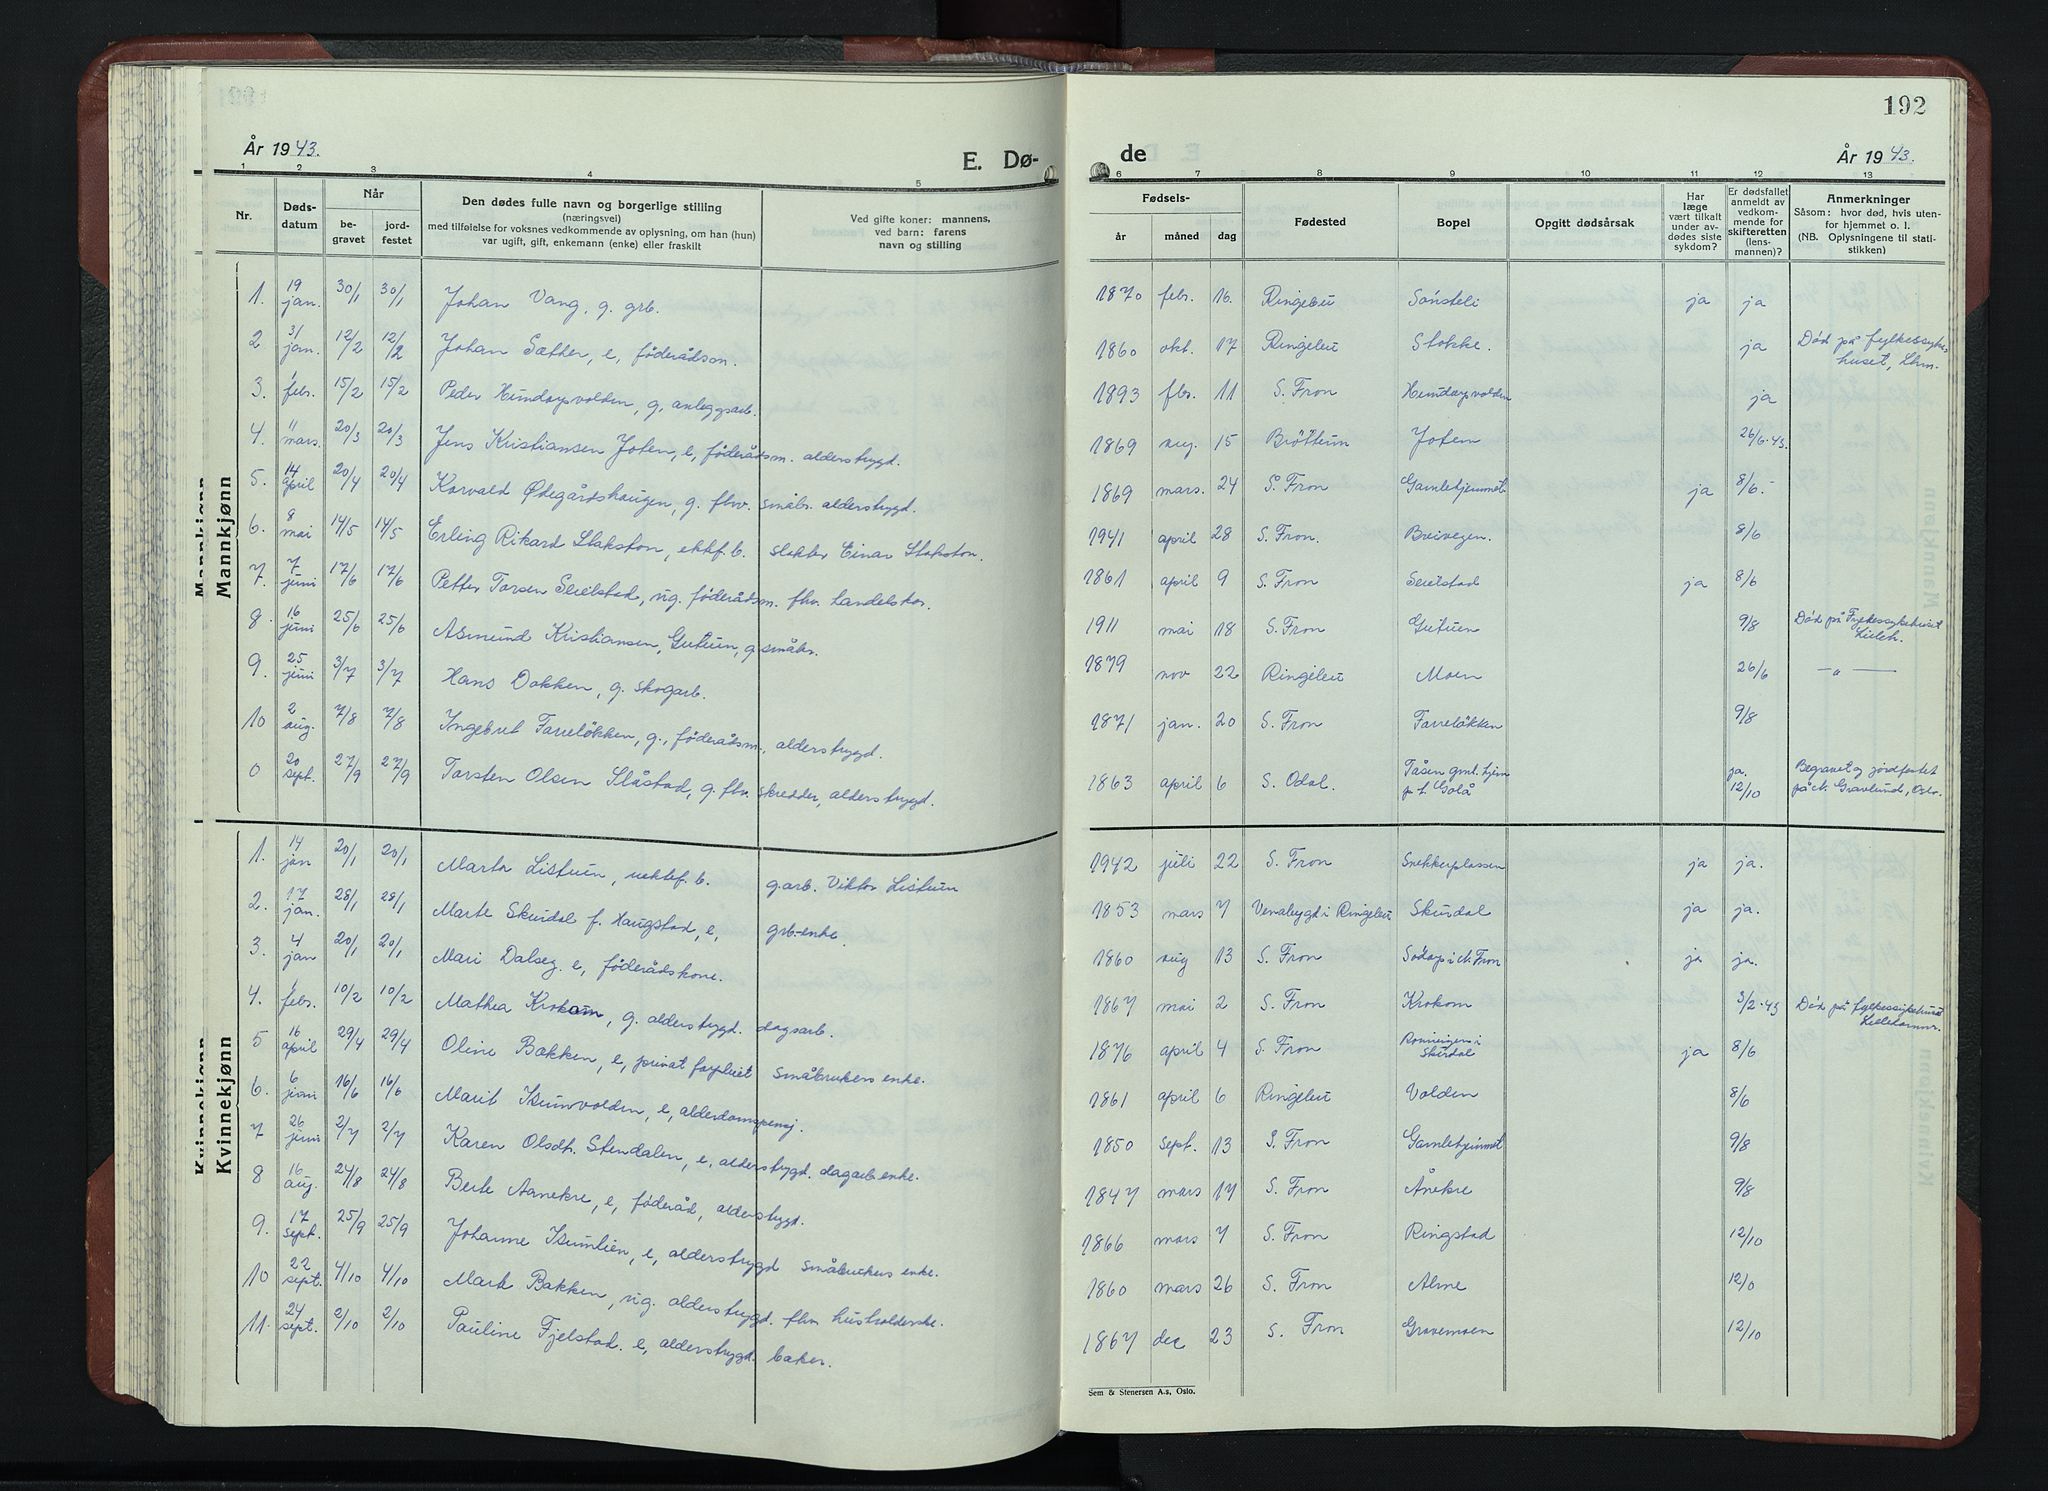 192
År 1943.
E. Dø-
de
År 1943.
1 2 3 4 5
6 7 8 9 10 11 12 13
Nr.
Døds-
datum
Når
be-
gravet
jord-
festet
Den dødes fulle navn og borgerlige stilling
(næringsvei)
med tilføielse for voksnes vedkommende av oplysning, om han (hun)
var ugift, gift, enkemann (enke) eller fraskilt
Ved gifte koner: mannens,
ved barn: farens
navn og stilling
Fødsels-
år
måned
dag
Fødested
Bopel
Opgitt dødsårsak
Har
læge
vært tilkalt
under av-
dødes siste
sykdom?
Er dødsfallet
anmeldt av
vedkom-
mende for
skifteretten
(lens-
mannen)?
Anmerkninger
Såsom: hvor død, hvis uten-
for hjemmet o. l.
(NB. Oplysningene til stati-
stikken)
Mannkjønn
Mannkjønn
1. 19 jan. 30/1 30/1 Johan Vang, g. grb. 1870 febr. 16. Ringebu Sønsteli ja ja
2 31 jan. 12/2 12/2 Johan Sæther, e, föderådsm. 1860 okt. 17 Ringebu Stokke. ja Død på fylkessyke
huset, Lhm.
3. 1 febr. 15/2 15/2 Peder Hundorpvolden, g, anleggsarb. 1893 fbr. 11 S. Fron Hundorpvolden ja
4. 11 mars. 20/3 20/3 Jens Kristiansen Joten, e, föderådsm. alderstrygd. 1869 aug. 15 Brøttum Joten 26/6-43.
5. 14 april 20/4 20/4 Korvald Ødegårdshaugen, g. fhv. småbr. alderstrygd. 1869 mars. 24 S. Fron Gamlehjemmet ja 8/6.-
6. 8 mai 14/5 14/5 Erling Rikard Stakston, ektef. b. slakter Einar Stakston. 1941 april 28 S. Fron. Breivegen. 8/6
7. 7 juni 17/6 17/6 Petter Torsen Seielstad, ug. föderådsm. fhv. handelskar. 1861 april 9 S. Fron Seielstad ja 8/6
8. 16 juni 25/6 25/6 Asmund Kristiansen, Gutuen, g småbr. 1911 mai 18 S. Fron Gutuen 9/8 Død på Fylkessykehuset
Lilleh.
9. 25 juni 3/7 3/7 Hans Dokken, g. skogarb. 1879 nov 22 Ringebu Moen 26/6 — " —
10 2 aug. 7/8 7/8 Ingebret Farreløkken, g., föderådsm., alderstrygd. 1871 jan. 20 S. Fron Farreløkken 9/8
0 20 sept. 27/9 27/9 Torsten Olsen Slåstad, g. fhv. skredder, alderstrygd. 1863 april 6 S. Odal. Tåsen gml. hjem ja. 12/10 Begravet og jordfestet
på N. Gravlund, Oslo.
Kvinnekjønn
Kvinnekjønn
1. 14 jan 20/1 20/1 Marta Listuen, uektef. b. g.arb. Viktor Listuen 1942 juli 22 S. Fron Snekkerplassen ja ja.
2. 17 jan. 28/1 28/1 Marte Skurdal f. Haugstad, e, grb.-enke. 1853 mars 7 Venabygd i Ringebu Skurdal ja ja.
3. 4 jan 20/1 20/1 Mari Dalseg. e, föderådskone. 1860 aug 13 S. Fron Södorp i N. Fron ja ja.
4. 1 febr. 10/2 10/2 Mathea Krokom, g. alderstrygd. dagsarb. 1867 mai 2 S. Fron Krokom 3/2-43 Død på fylkessykehuset
Lillehammer.
5 16 april 29/4 29/4 Oline Bakken, e, privat forpleiet småbrukers enke. 1876 april 4 S. Fron Rønningen i
Skurdal ja 8/6
6. 6 juni 16/6 16/6 Marit Isumvolden, e, alderdomspensj. 1861 april 6 Ringebu Volden 8/6
7 26 juni 2/7 2/7 Karen Olsdt. Stendalen, e, alderstrygd. dagarb enke. 1850 sept. 13 S. Fron Gamlehjemmet 9/8
8 16 aug. 24/8 24/8 Berte Aanekre, e, föderåd, alderstrygd. 1847 mars 17 S. Fron Ånekre 9/8
9. 17 sept. 25/9 25/9 Johanne Isumlien, e, alderstrygd småbrukers enke. 1866 mars 7 S. Fron Ringstad 12/10
10 22 sept. 4/10 4/10 Marit Bakken, ug. alderstrygd. fhv. husholderske. 1860 mars 26 S. Fron Alme 12/0
11. 24 sept. 2/10 2/10 Pauline Fjelstad. e, alderstrygd. baker. 1867 dec 23 S. Fron Gravemoen 12/10
Sem & Stenersen A.s, Oslo.